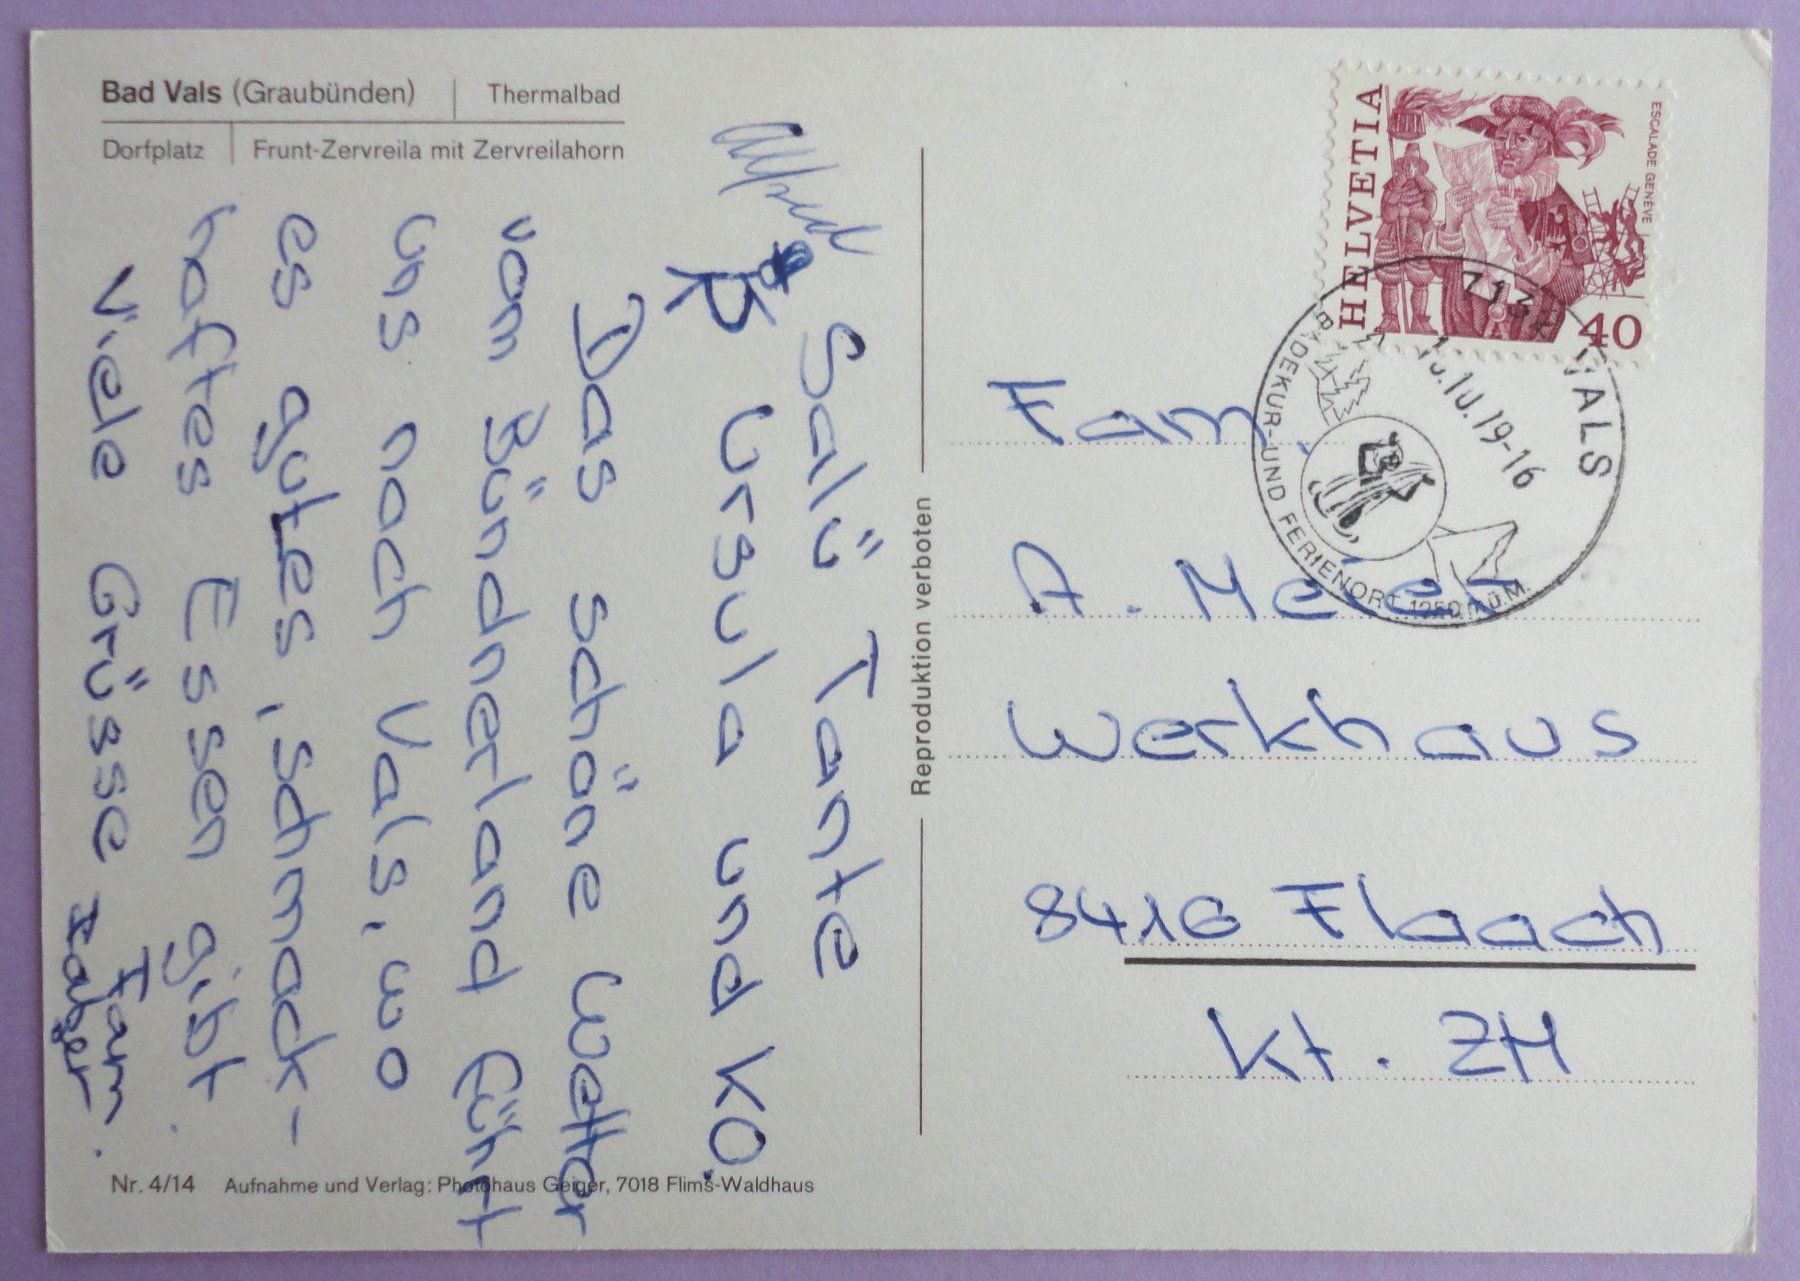 Bad Vals (Graubünden) Thermalbad
Dorfplatz Frunt-Zervreila mit Zervreilahorn
Salü Tante
Ursula und KO.
Das schöne Wetter
vom Bündnerland führt
uns nach Vals, wo
es gutes, schmack-
haftes Essen gibt.
Viele Grüsse Fam.
Alfred
Nr. 4/14 Aufnahme und Verlag: Photohaus Geiger, 7018 Flims-Waldhaus
Reproduktion verboten
HELVETIA
ESCALADE GENÈVE
40
VALS
BADEKUR- UND FERIENORT 1250 m ü.M.
Fam.
A. Meier
Werkhaus
8416 Flaach
Kt. ZH